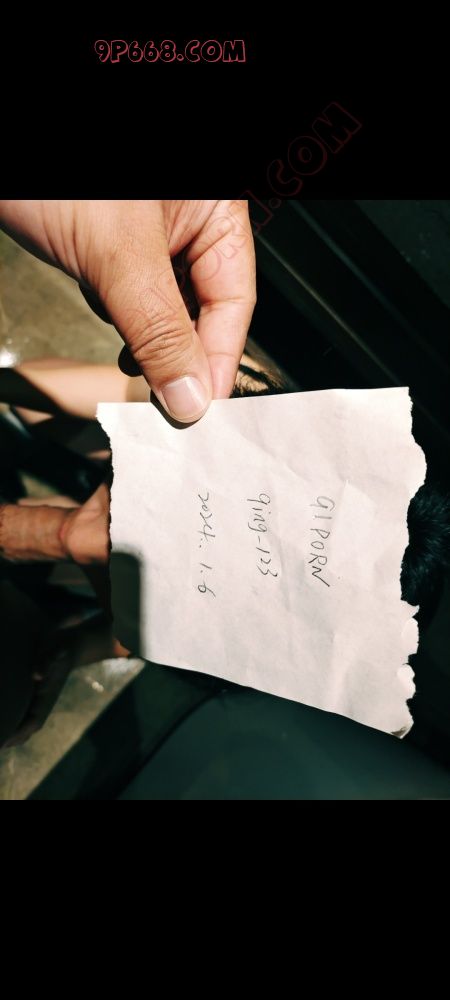 9P668.COM
91PORN
qing-123
2024.1.6